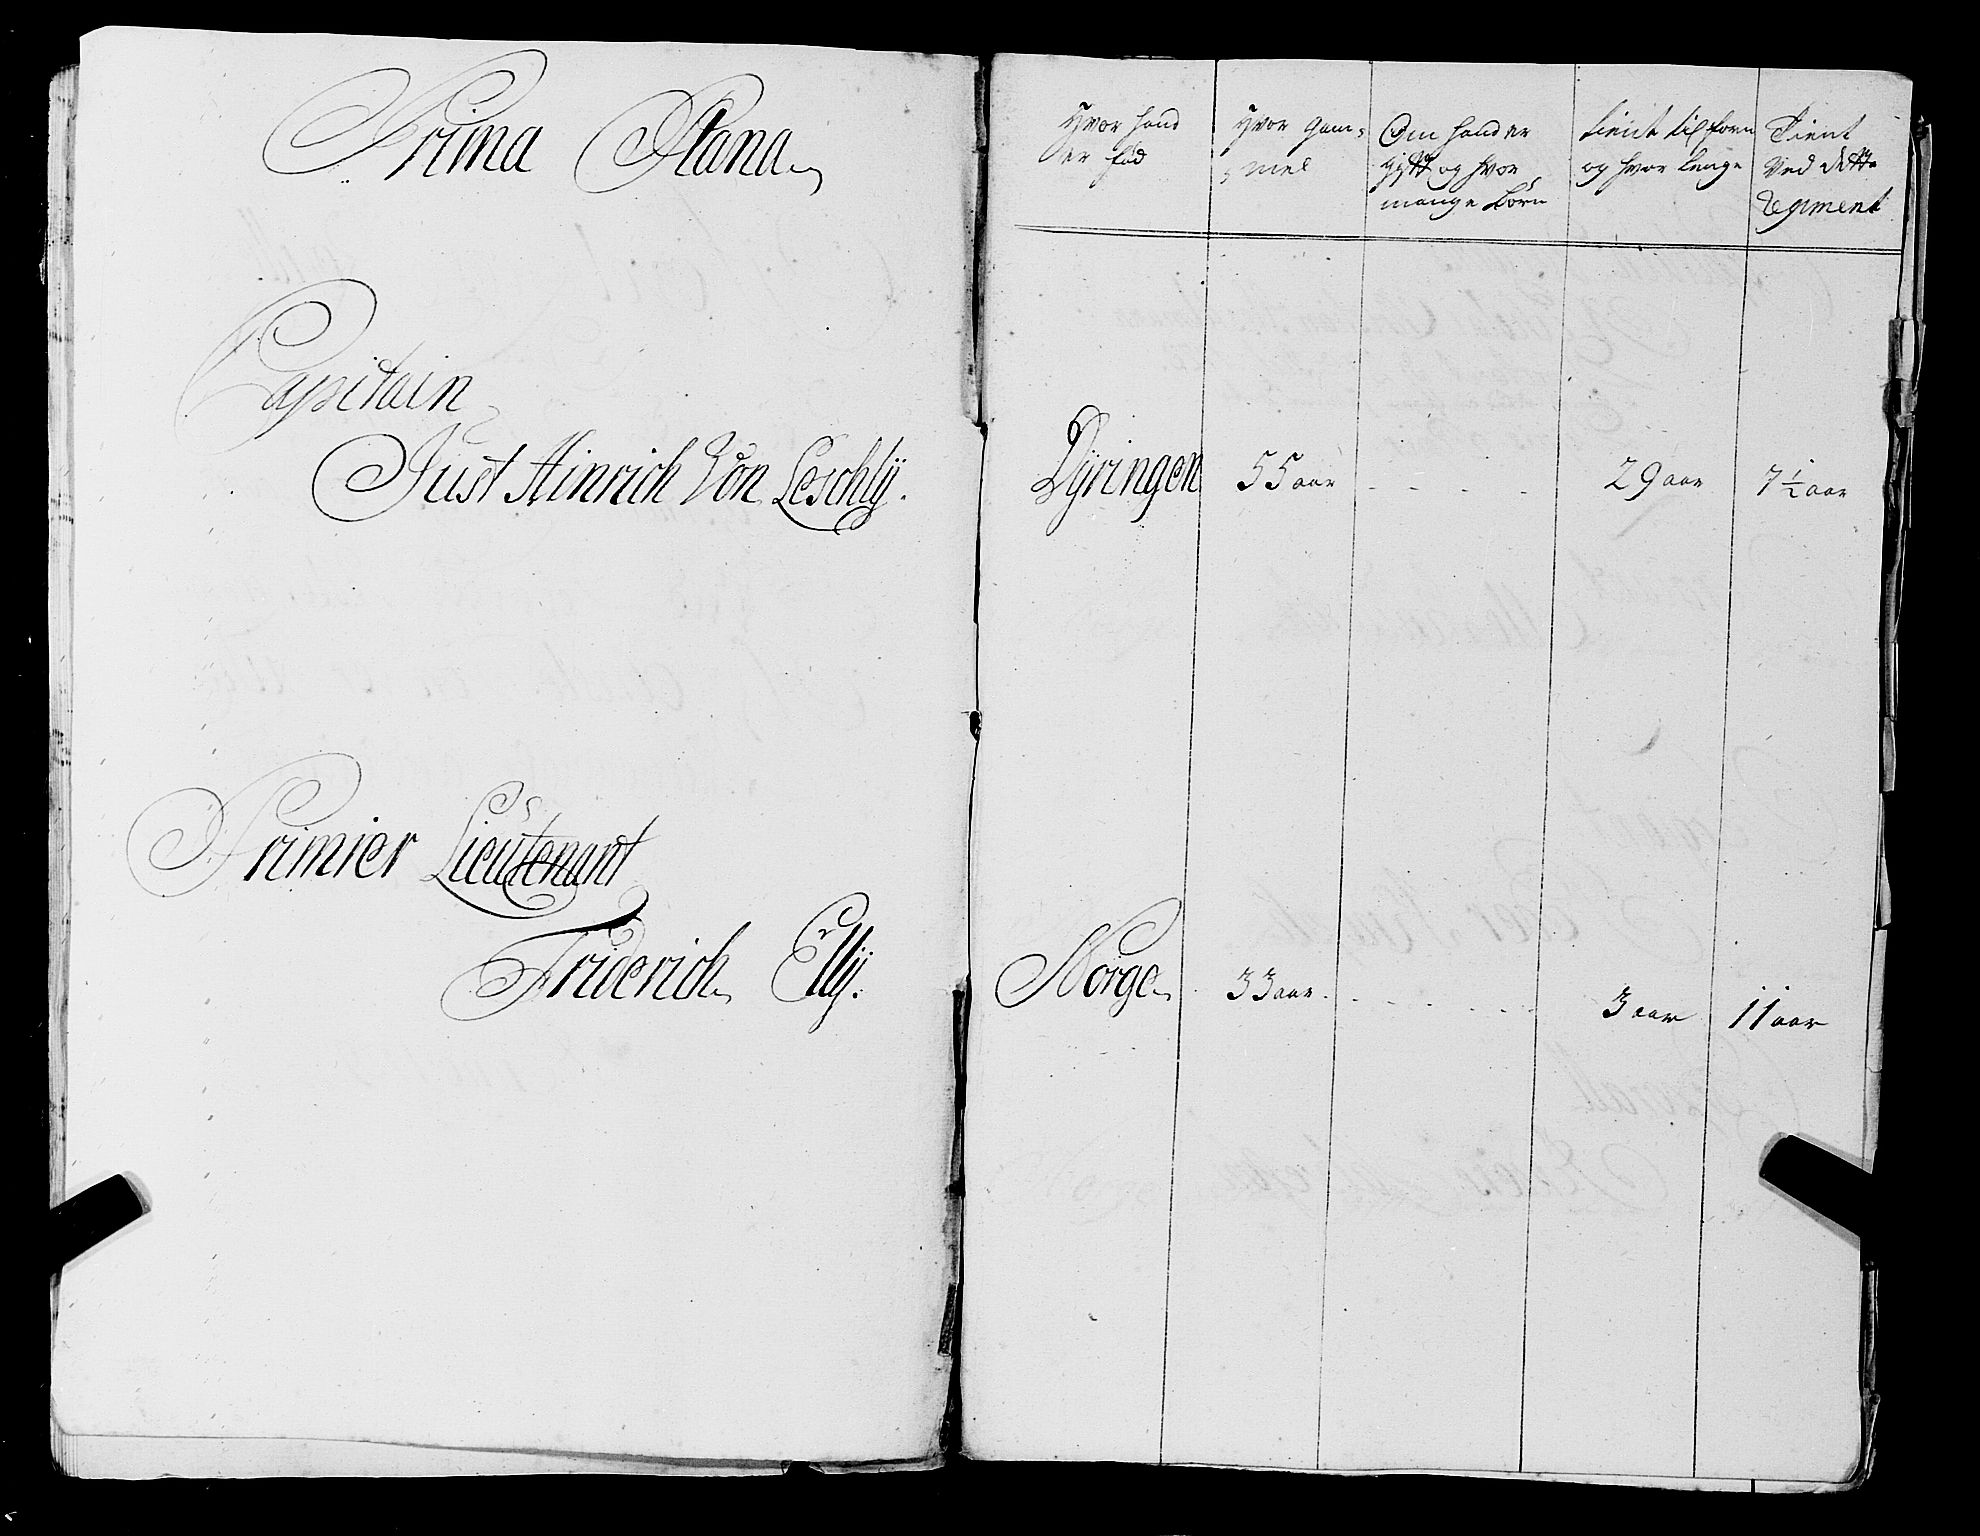 Prima Plana
Capitain
Just Hinrich Von Leschlÿ.
Primier Lieutenant
Friderich Ellÿ.
Hvor hand er fød
Hvor gam=mel
Om hand er gift og hvor mange børn
tient til forn og hvor lenge
Tient Ved dette Regiment
Dÿringen 55 aar - - - - 29 aar 7 ½ aar
Norge 33 aar. - - - - - 3 aar 11 aar